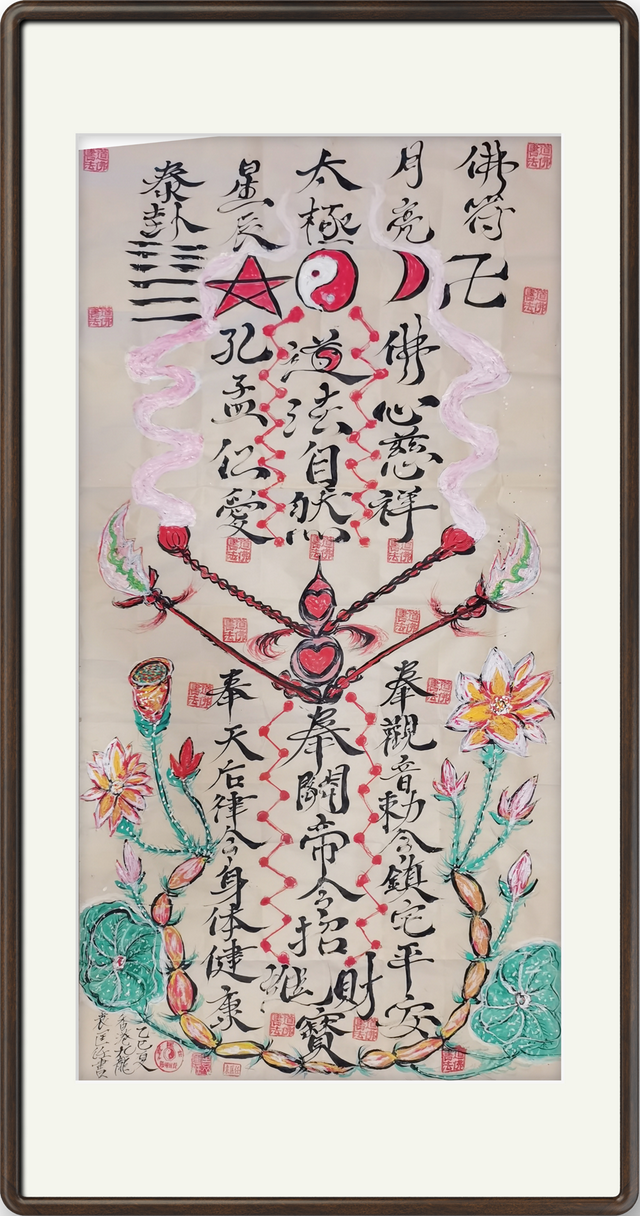 佛符
卍
月亮
太極
星辰
泰卦
佛心慈祥
道法自然
孔孟仁愛
奉觀音勅令鎮宅平安
奉關帝令招進財寶
奉天后律令身体健康
乙巳夏
香港九龍
道佛書法